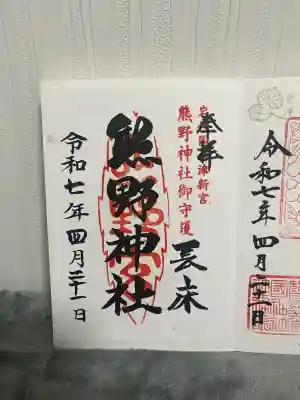 奉拝
熊野神社御守護
長床
熊野神社
令和七年四月二十一日
令和七年四月二十一日